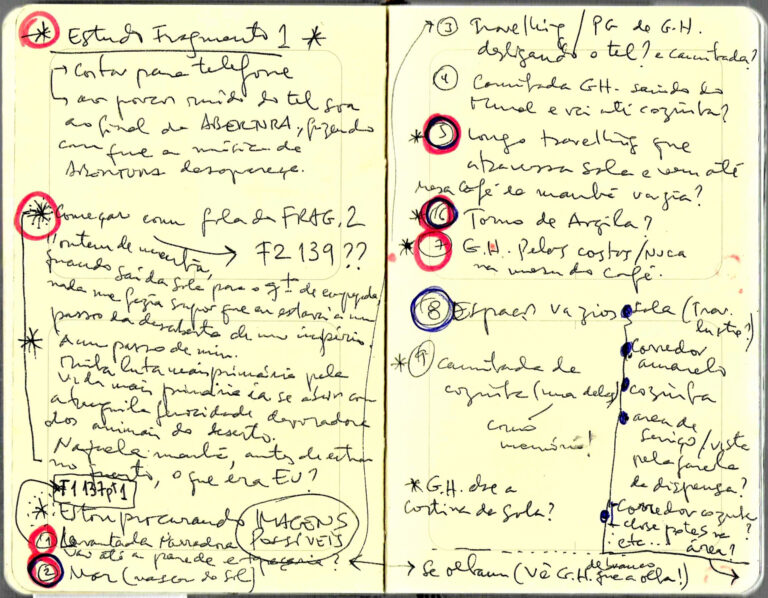 * Estudo Fragmento 1 *
→ Cortar para telefone
→ aos poucos ruído do tel soa
ao final da ABERTURA, fazendo
com que a música de
ABERTURA desapareça.
* Começar com fala da FRAG. 2
→ F2 139 ??
Ontem de manhã,
quando saí da sala para o qto de empregada,
nada me fazia supor que eu estava a um
passo da descoberta de um império.
* A um passo de mim.
Minha luta mais primária pela
vida mais primária ia se abrir com
a tranquila ferocidade devoradora
dos animais do deserto.
Naquela manhã, antes de entrar
no quarto, o que era EU?
F1 137 pt 1
* Estou procurando IMAGENS
POSSÍVEIS
1 Levantada Narradora
vai até a parede e
2 Mar (nascer do sol)
3 Travelling / PG de G.H.
desligando o tel? e caminhada?
4 Caminhada G.H. saindo do
e vai até cozinha?
* 5 Longo travelling que
atravessa sala e vem até
mesa café da manhã vazia?
* 6 Torno de Argila?
* 7 G.H. Pelas costas/Nuca
na mesa do café.
8 Espaços vazios • sala (Trav.
lustre?)
• corredor
amarelo
• cozinha
• área de
serviço/vista
pela janela
da dispensa?
• Corredor cozinha
close potes na
etc... área?
* 9 Caminhada de
cozinha (uma delas)
como
memória!
* G.H. abre a
cortina da sala?
→ Se olham (Vê G.H. de branco que a olha!)